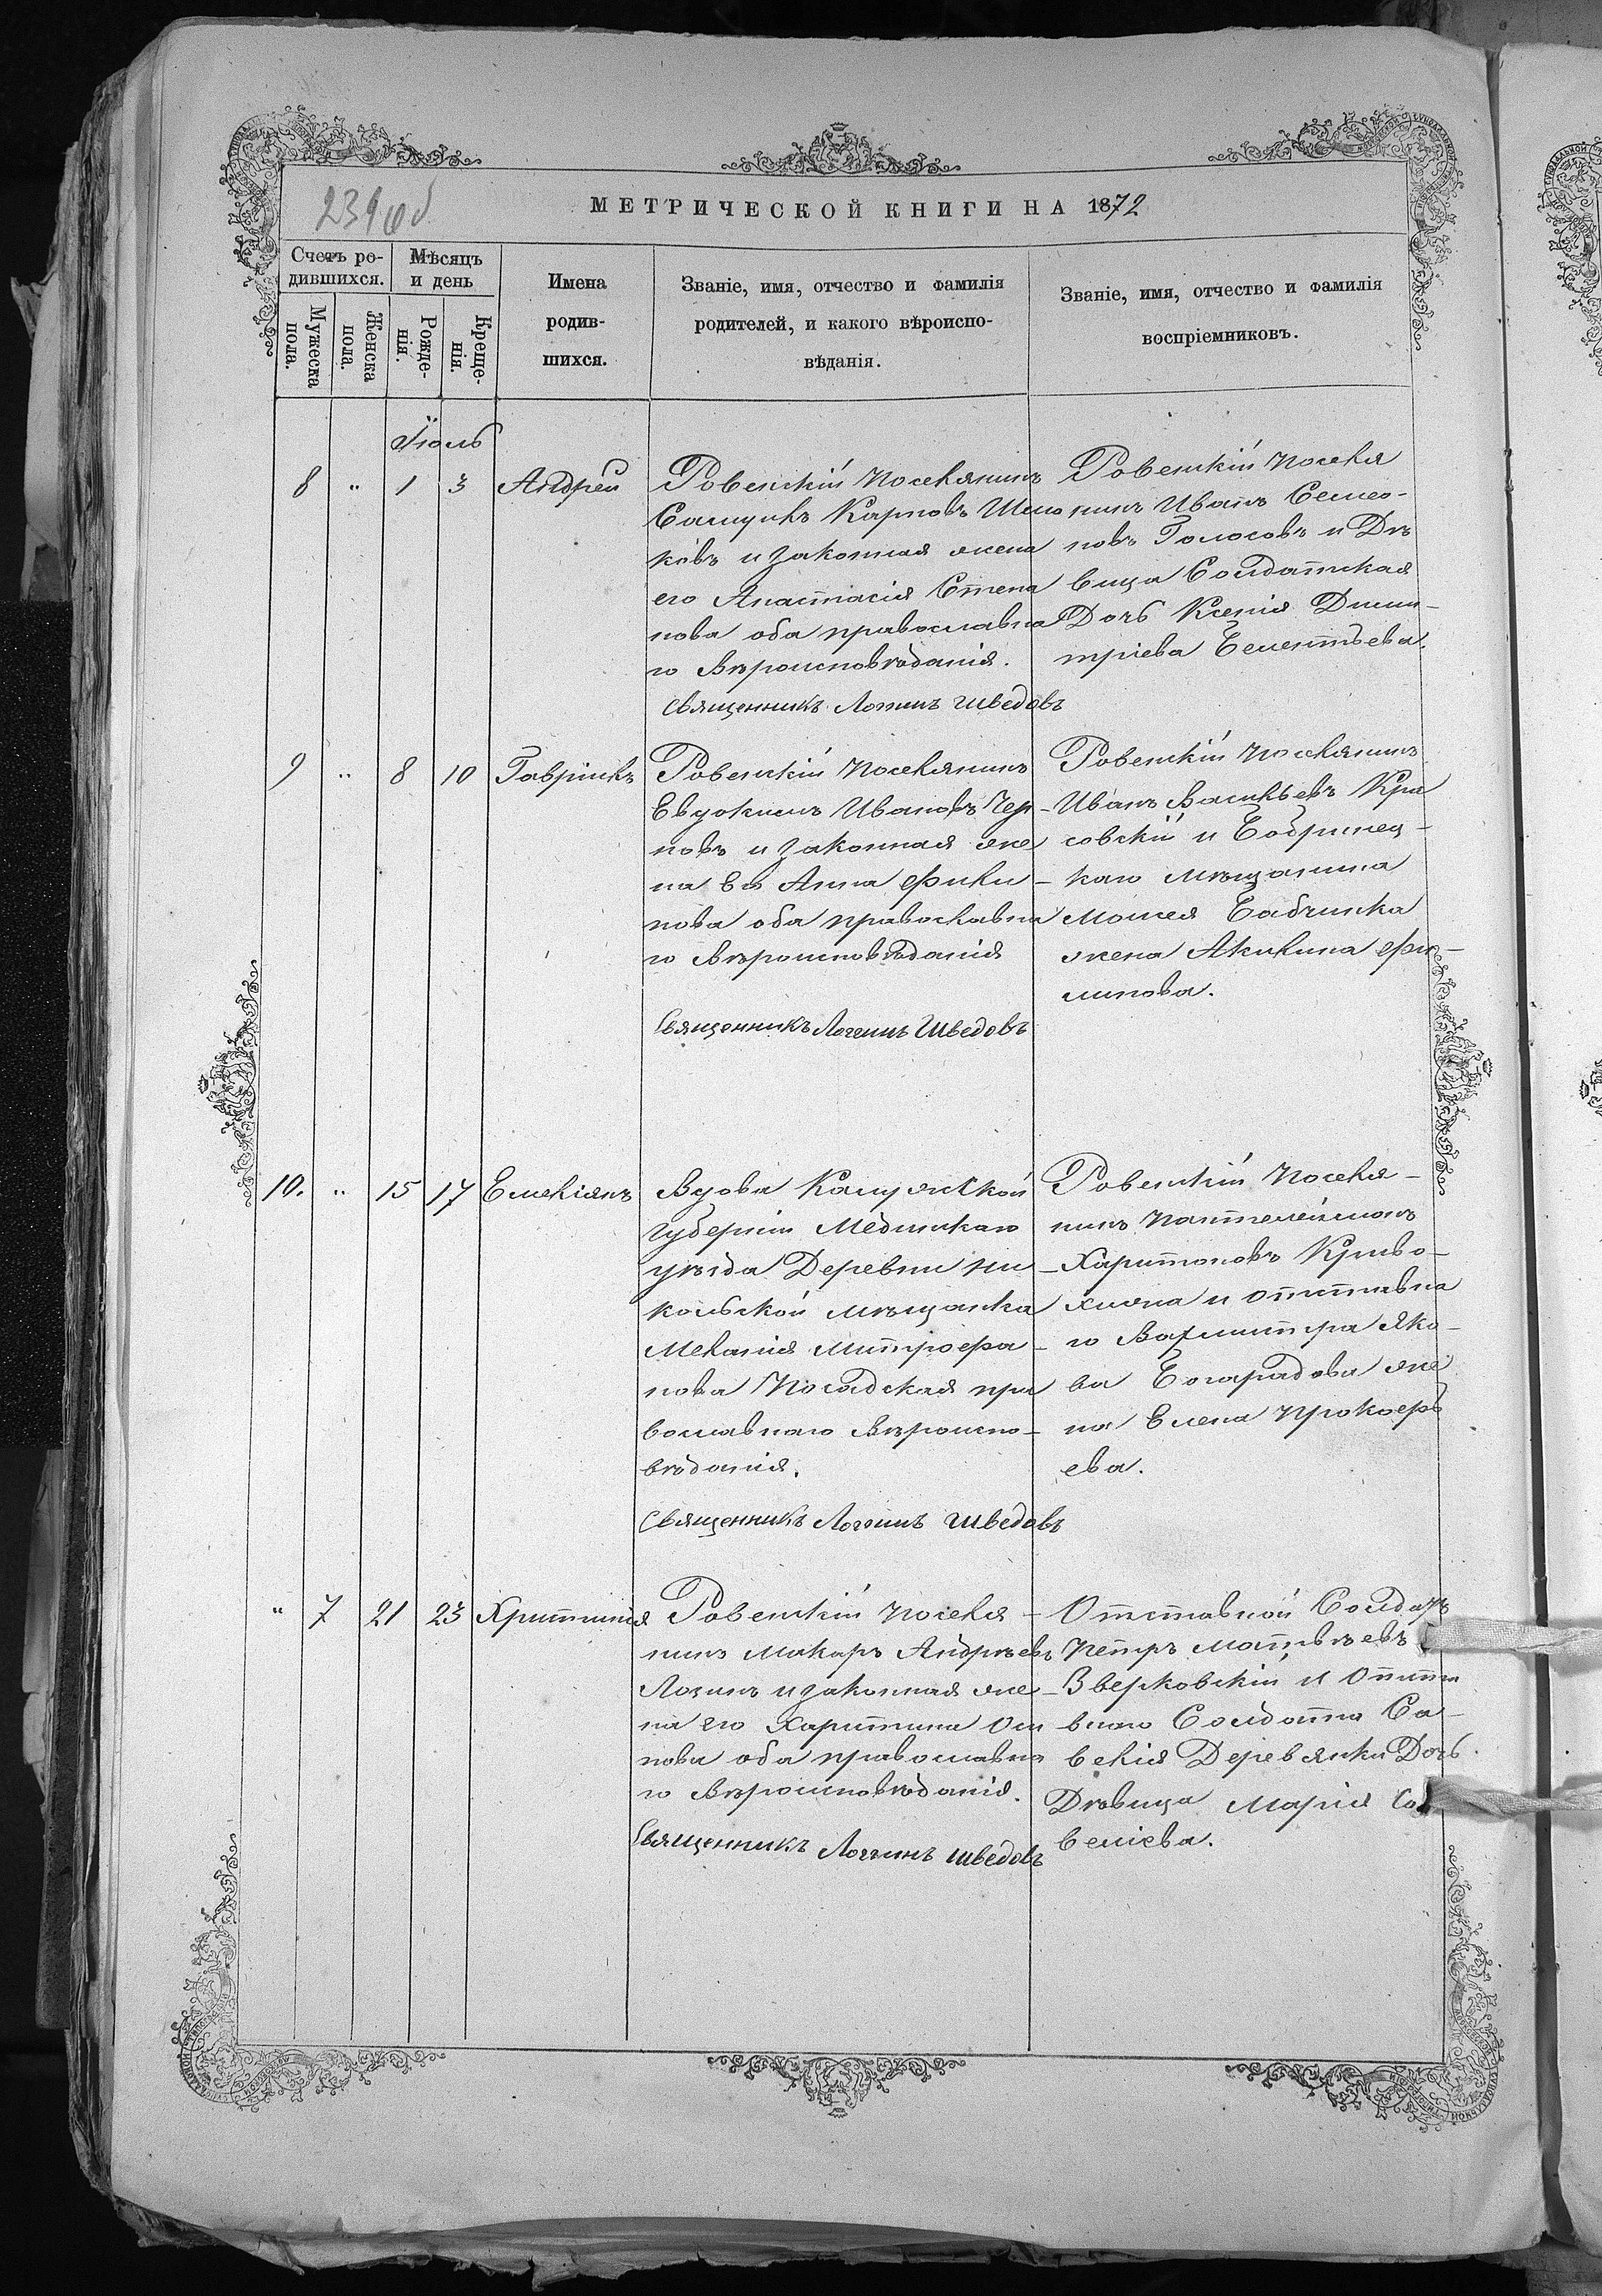 239 об
МЕТРИЧЕСКОЙ КНИГИ НА 1872
Счетъ ро-
дившихся.
Мѣсяцъ
и день
Мужеска
пола.
Женска
пола.
Рожде-
нія.
Креще-
нія.
Имена
родив-
шихся.
Званіе, имя, отчество и фамилія
родителей, и какого вѣроиспо-
вѣданія.
Званіе, имя, отчество и фамилія
воспріемниковъ.
Іюль
8 " 1 3 Андрей
Ровенскій Поселянинъ
Самуилъ Карповъ
ковъ и законная жена
его Анастасія Степа
нова оба православна
го Вѣроисповѣданія.
Священникъ Логинъ Шведовъ
Ровенскій Поселя
нинъ Иванъ Семео-
новъ Голосовъ и Дѣ
вица Солдатская
Дочь Ксенія Дими-
тріева
9 " 8 10 Гавріилъ
Ровенскій Поселянинъ
Евдокимъ Ивановъ Чер-
новъ и законная же
на Ев Анна Фили-
пова оба православна
го Вѣроисповѣданія
Священникъ Логгинъ Шведовъ
Ровенскій Поселянинъ
Иванъ Васильевъ Кра
совскій и Бобринец-
каго мѣщанина
Моисея Бабчинска
жена Акилина Фи-
липова.
10. " 15 17 Емеліянъ
Вдова Калужской
Губерніи Медынскаго
уѣзда Деревни Ни-
кольской мѣщанка
Меланія Митрофа-
нова Посадская пра
вославнаго Вѣроиспо-
вѣданія.
Священникъ Логгинъ Шведовъ
Ровенскій Поселя-
нинъ Пантелеймонъ
Харитоновъ Криво-
и отставна
го Вахмистра Яко-
ва же
на Елена Прокофь
ева.
" 7 21 23 Христинія
Ровенскій Поселя-
нинъ Макаръ Андрѣевъ
Лозинъ и законная же-
на его Харитина Оси
пова оба православна
го Вѣроисповѣданія.
Священникъ Логгинъ Шведовъ
Отставной Солдатъ
Петръ Матвѣевъ
Зверковскій и Отста
внаго Солдата Са-
велія Деревянки Дочь
Дѣвица Марія Са
веліева.